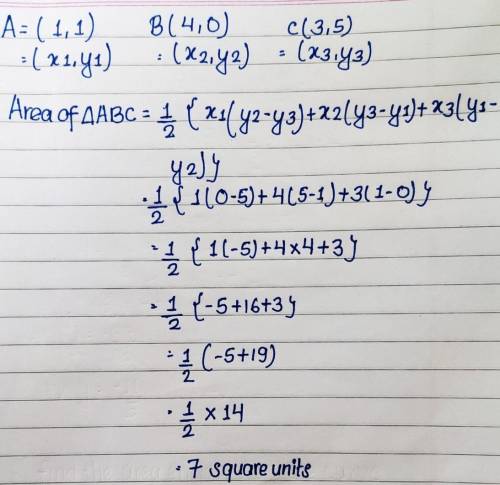 A = (1,1) B(4,0) C(3,5)
= (x1,y1) = (x2,y2) = (x3,y3)
Area of ΔABC = 1/2 { x1(y2-y3)+x2(y3-y1)+x3(y1-
y2)}
= 1/2 { 1(0-5)+4(5-1)+3(1-0)}
= 1/2 { 1(-5)+4×4+3}
= 1/2 {-5+16+3}
= 1/2 (-5+19)
= 1/2 × 14
= 7 square units